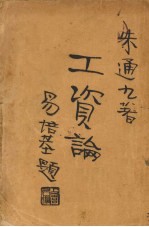 朱通九著
工資論
易培基題